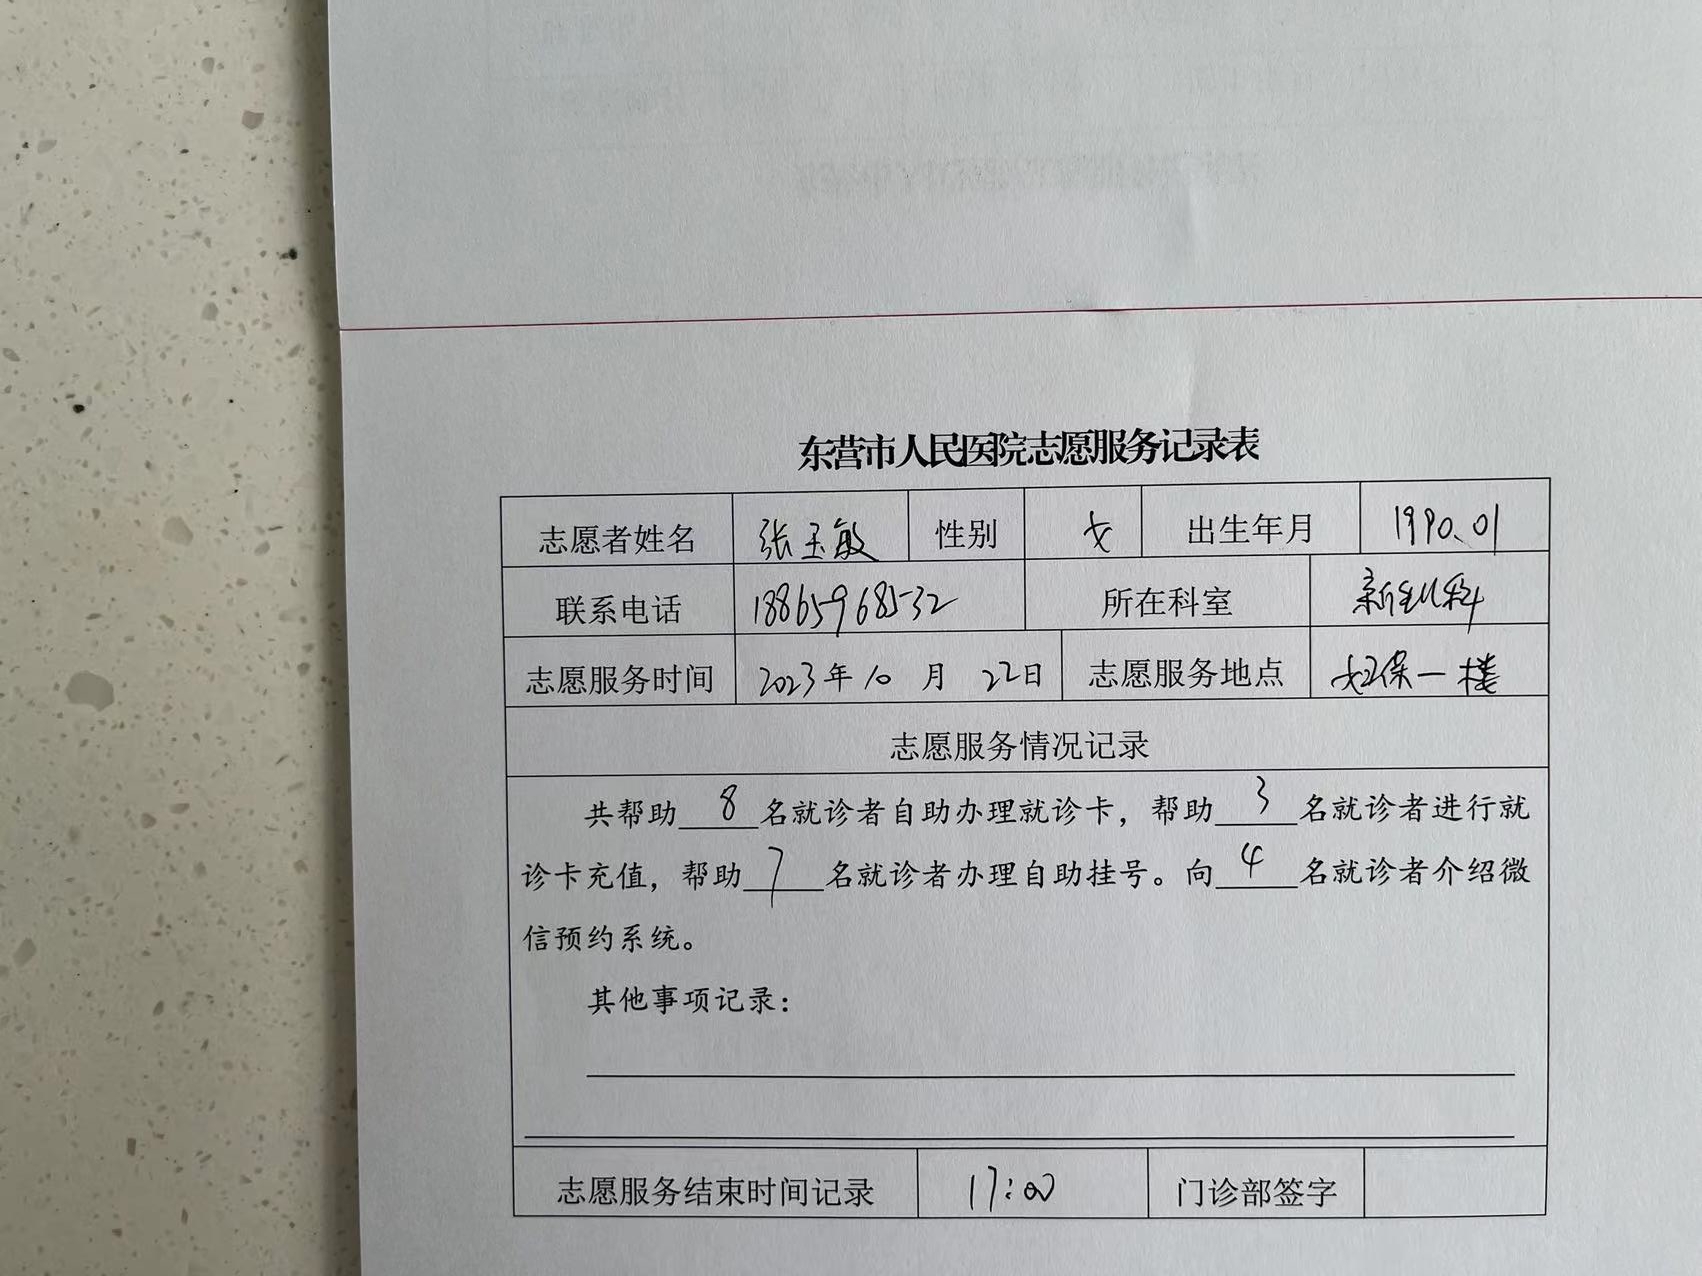 东营市人民医院志愿服务记录表
志愿者姓名 张玉敏 性别 女 出生年月 1990.01
联系电话 18865968532 所在科室 新生儿科
志愿服务时间 2023年10月22日 志愿服务地点 妇保一楼
志愿服务情况记录
共帮助 8 名就诊者自助办理就诊卡，帮助 3 名就诊者进行就
诊卡充值，帮助 7 名就诊者办理自助挂号。向 4 名就诊者介绍微
信预约系统。
其他事项记录：
志愿服务结束时间记录 17:00 门诊部签字